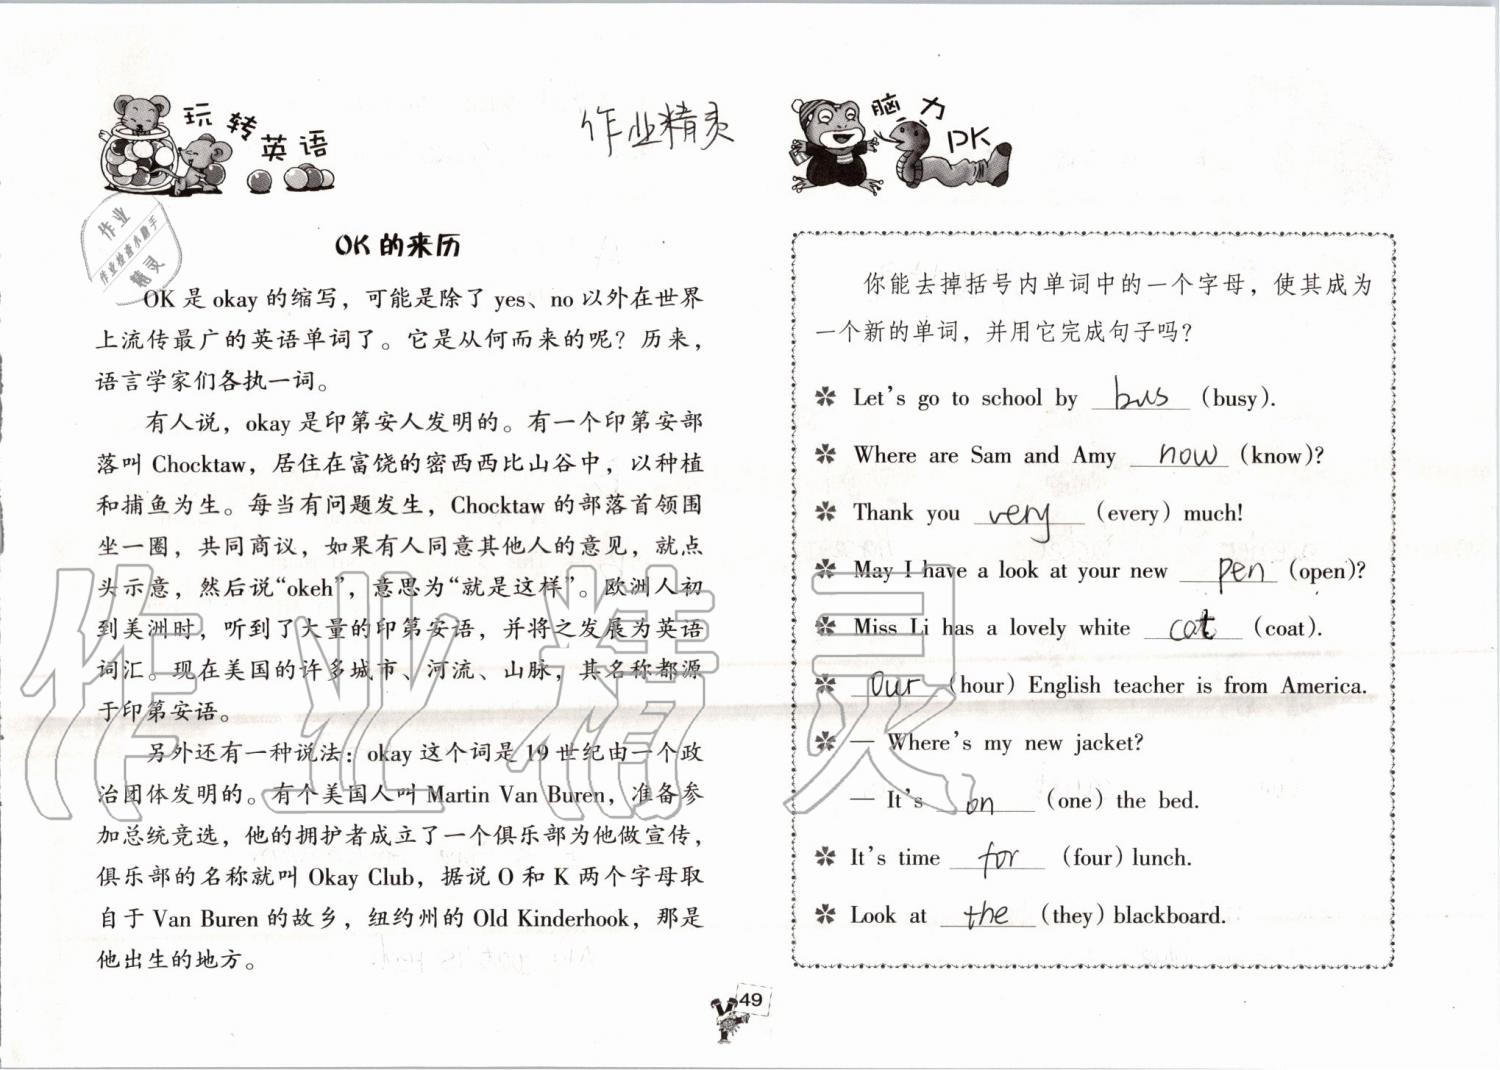 玩转英语
作业精灵
作业
作业检查小助手
精灵
OK的来历
OK 是 okay 的缩写，可能是除了 yes、no 以外在世界
上流传最广的英语单词了。它是从何而来的呢？历来，
语言学家们各执一词。
有人说，okay 是印第安人发明的。有一个印第安部
落叫 Chocktaw，居住在富饶的密西西比山谷中，以种植
和捕鱼为生。每当有问题发生，Chocktaw 的部落首领围
坐一圈，共同商议，如果有人同意其他人的意见，就点
头示意，然后说“okeh”，意思为“就是这样”。欧洲人初
到美洲时，听到了大量的印第安语，并将之发展为英语
词汇。现在美国的许多城市、河流、山脉，其名称都源
于印第安语。
另外还有一种说法：okay 这个词是 19 世纪由一个政
治团体发明的。有个美国人叫 Martin Van Buren，准备参
加总统竞选，他的拥护者成立了一个俱乐部为他做宣传，
俱乐部的名称就叫 Okay Club，据说 O 和 K 两个字母取
自于 Van Buren 的故乡，纽约州的 Old Kinderhook，那是
他出生的地方。
作业精灵
脑力PK
你能去掉括号内单词中的一个字母，使其成为
一个新的单词，并用它完成句子吗？
Let's go to school by bus (busy).
Where are Sam and Amy now (know)?
Thank you very (every) much!
May I have a look at your new pen (open)?
Miss Li has a lovely white cat (coat).
Our (hour) English teacher is from America.
— Where's my new jacket?
— It's on (one) the bed.
It's time for (four) lunch.
Look at the (they) blackboard.
49